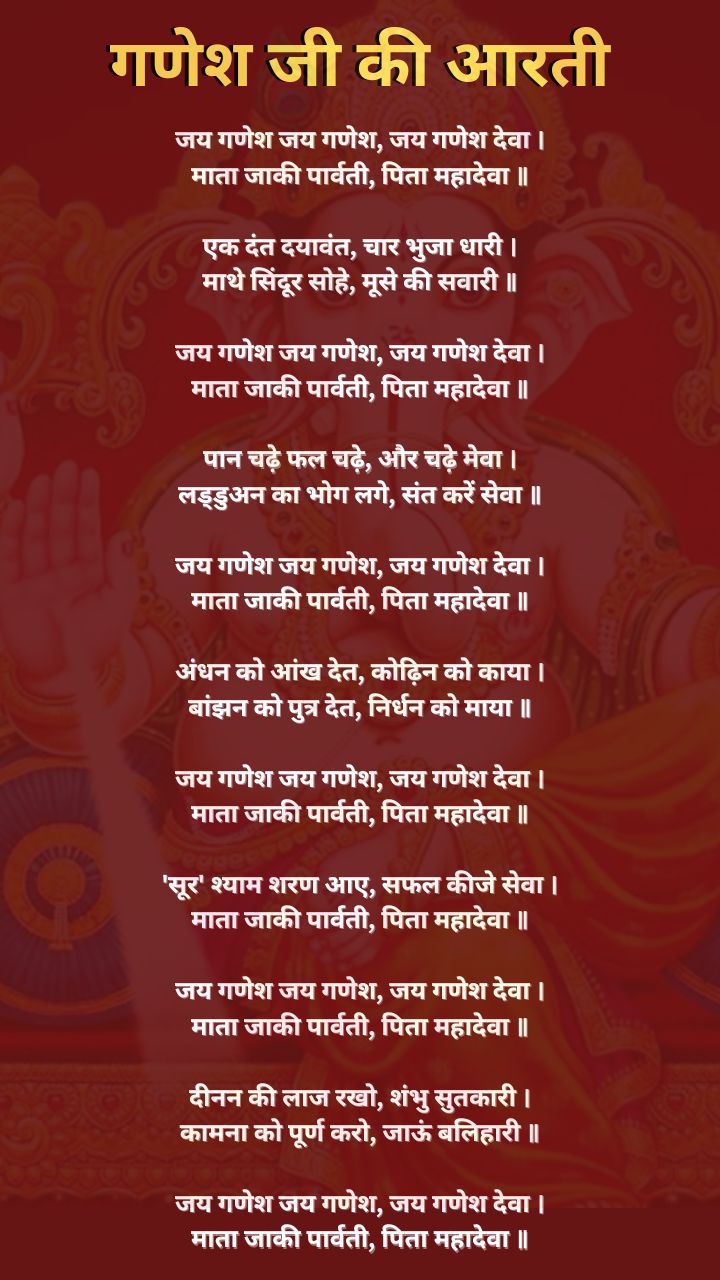 गणेश जी की आरती
जय गणेश जय गणेश, जय गणेश देवा ।
माता जाकी पार्वती, पिता महादेवा ॥
एक दंत दयावंत, चार भुजा धारी ।
माथे सिंदूर सोहे, मूसे की सवारी ॥
जय गणेश जय गणेश, जय गणेश देवा ।
माता जाकी पार्वती, पिता महादेवा ॥
पान चढ़े फल चढ़े, और चढ़े मेवा ।
लड्डुअन का भोग लगे, संत करें सेवा ॥
जय गणेश जय गणेश, जय गणेश देवा ।
माता जाकी पार्वती, पिता महादेवा ॥
अंधन को आंख देत, कोढ़िन को काया ।
बांझन को पुत्र देत, निर्धन को माया ॥
जय गणेश जय गणेश, जय गणेश देवा ।
माता जाकी पार्वती, पिता महादेवा ॥
'सूर' श्याम शरण आए, सफल कीजे सेवा ।
माता जाकी पार्वती, पिता महादेवा ॥
जय गणेश जय गणेश, जय गणेश देवा ।
माता जाकी पार्वती, पिता महादेवा ॥
दीनन की लाज रखो, शंभु सुतकारी ।
कामना को पूर्ण करो, जाऊं बलिहारी ॥
जय गणेश जय गणेश, जय गणेश देवा ।
माता जाकी पार्वती, पिता महादेवा ॥